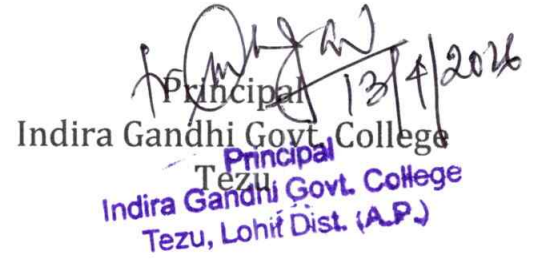 13/4/2026
Principal
Indira Gandhi Govt. College
Tezu
Principal
Indira Gandhi Govt. College
Tezu, Lohit Dist. (A.P.)